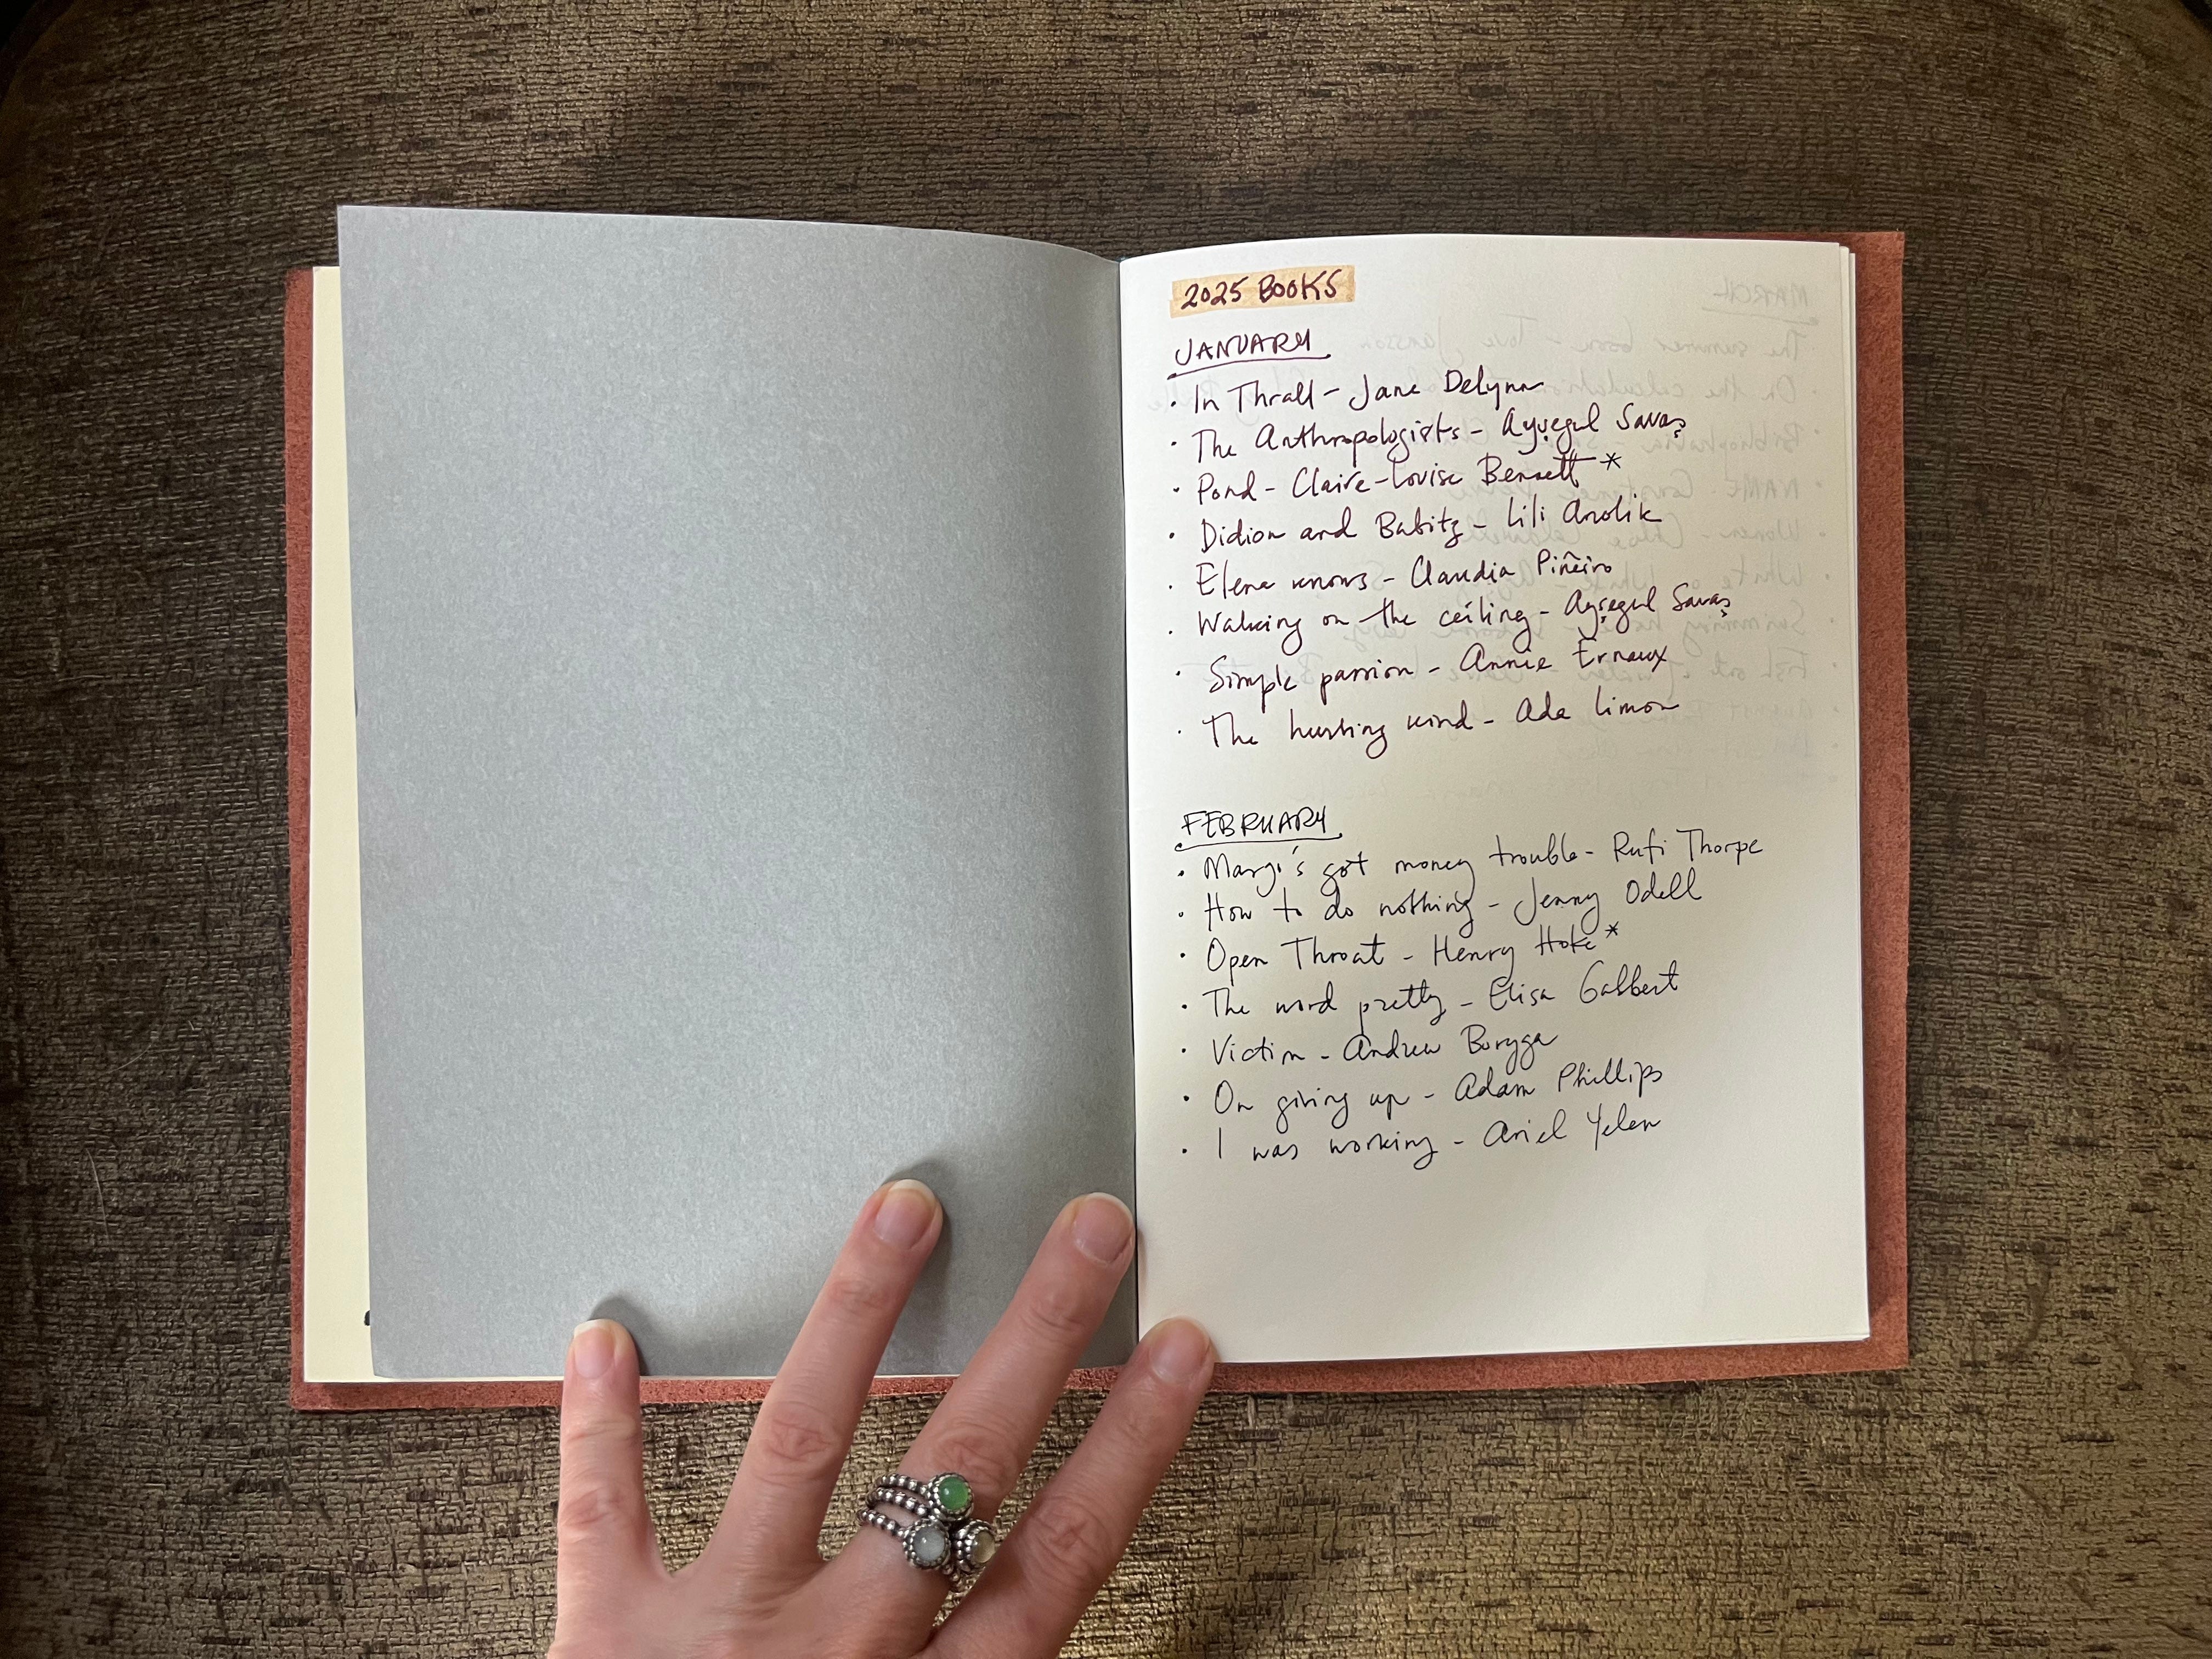 2025 BOOKS
JANUARY
· In Thrall - Jane DeLynn
· The Anthropologists - Ayşegul Savaş
· Pond - Claire-Louise Bennett *
· Didion and Babitz - Lili Anolik
· Elena knows - Claudia Piñeiro
· Walking on the ceiling - Ayşegul Savaş
· Simple passion - Annie Ernaux
· The hurting kind - Ada Limon
FEBRUARY
· Margo's got money trouble - Rufi Thorpe
· How to do nothing - Jenny Odell
· Open Throat - Henry Hoke *
· The word pretty - Elisa Gabbert
· Victim - Andrew Boryga
· On giving up - Adam Phillips
· I was working - Ariel Yelen